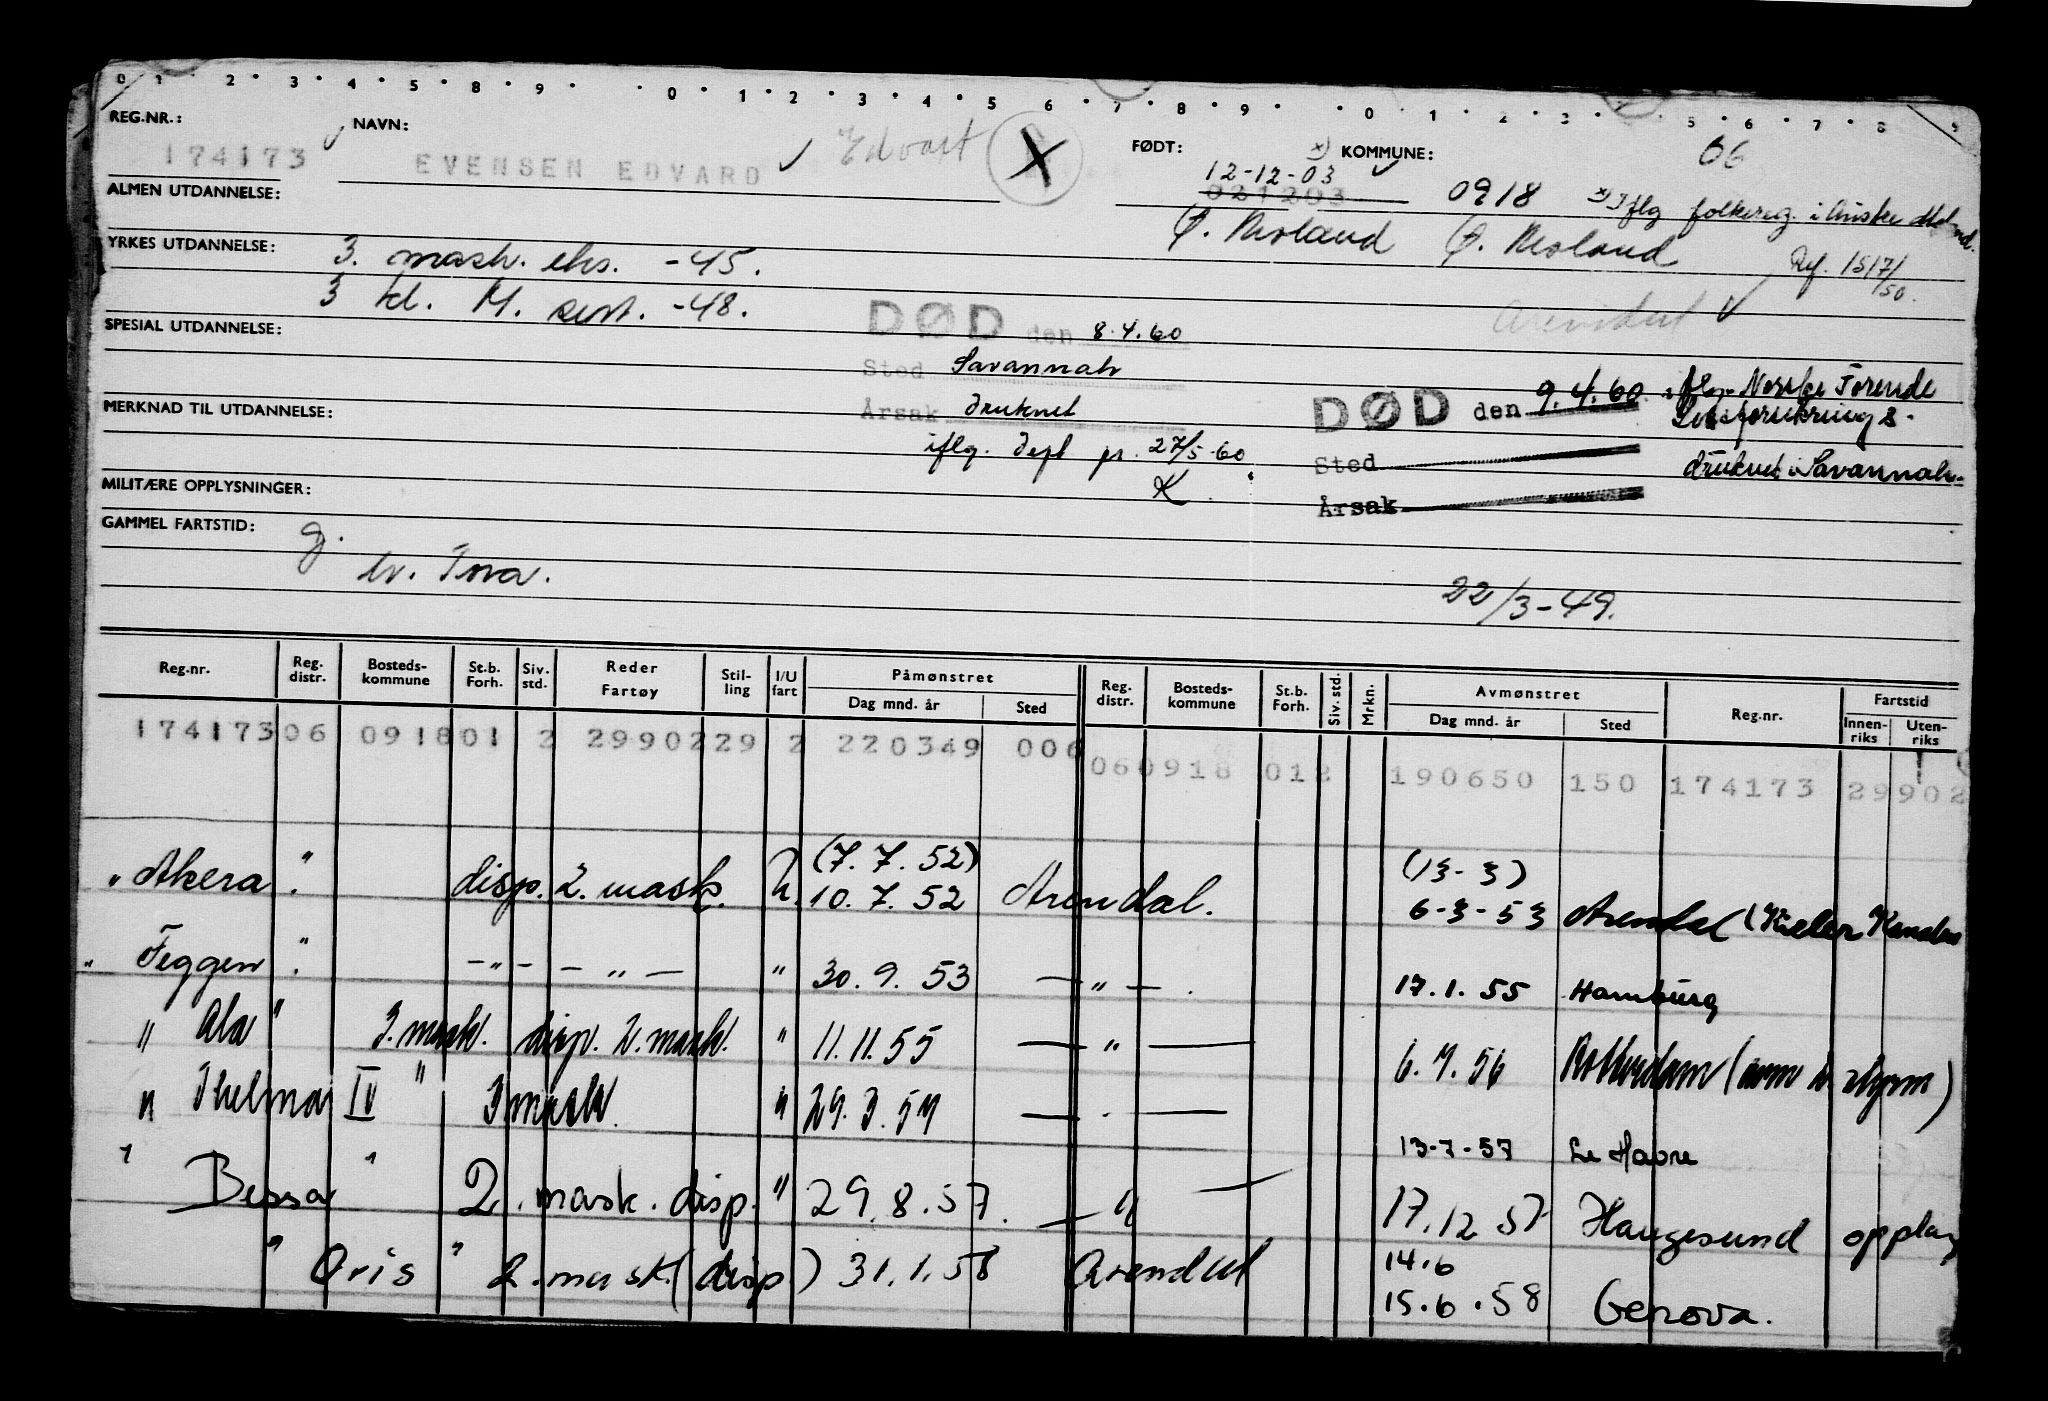 0 1 2 3 4 5 8 9 0 1 2 3 4 5 6 7 8 9 0 1 2 3 5 6 7 8 9
REG.NR.: NAVN: Edvart X FØDT: x) KOMMUNE: 06
174173 EVENSEN EDVARD 12-12-03
021203 0918 x) Iflg folkereg. i Austre Moland.
ALMEN UTDANNELSE: Ø. Moland Ø. Moland Ref. 1517/50.
YRKES UTDANNELSE: 3. mask. eks. -45.
3 kl. M. sert. -48. Arendal
SPESIAL UTDANNELSE: DØD den 8.4.60
Sted Savannah
DØD den 9.4.60 iflg. Norske Forende Livsforsikrings.
MERKNAD TIL UTDANNELSE: Årsak druknet
iflg. dept pr. 27/5-60.
K
Sted druknet i Savannah.
MILITÆRE OPPLYSNINGER: Årsak
GAMMEL FARTSTID: g.
Tora. 22/3-49.
Reg.nr. Reg. distr. Bosteds-kommune St.b. Forh. Siv. std. Reder Fartøy Stil-ling I/U fart Påmønstret Dag mnd. år Sted Reg. distr. Bosteds-kommune St.b. Forh. Siv. std. Mrkn. Avmønstret Dag mnd. år Sted Reg.nr. Fartstid Innen-riks Uten-riks
174173 06 0918 01 2 29902 29 2 220349 006 06 0918 01 2 190650 150 174173 29902
(7.7.52) (13-3)
" Akera " disp. 2. mask. U. 10.7.52 Arendal. 6-3-53 Arendal (Kieler Kanalen
" Feggen " -"- -"- " 30.9.53 -"-. 17.1.55 Hamburg
" Ala " 3. mask. disp. 2. mask. " 11.11.55 -"- 6.7.56 Rotterdam
" Thelma IV " 3 mask. " 29.3.57 -"- 13-7-57 Le Havre
" Bessa " 2. mask. disp. " 29.8.57. -"- 17.12 57 Haugesund opplag
" Oris " 2. mask. (disp.) 31.1.58 Arendal 14.6
15.6.58 Genova.